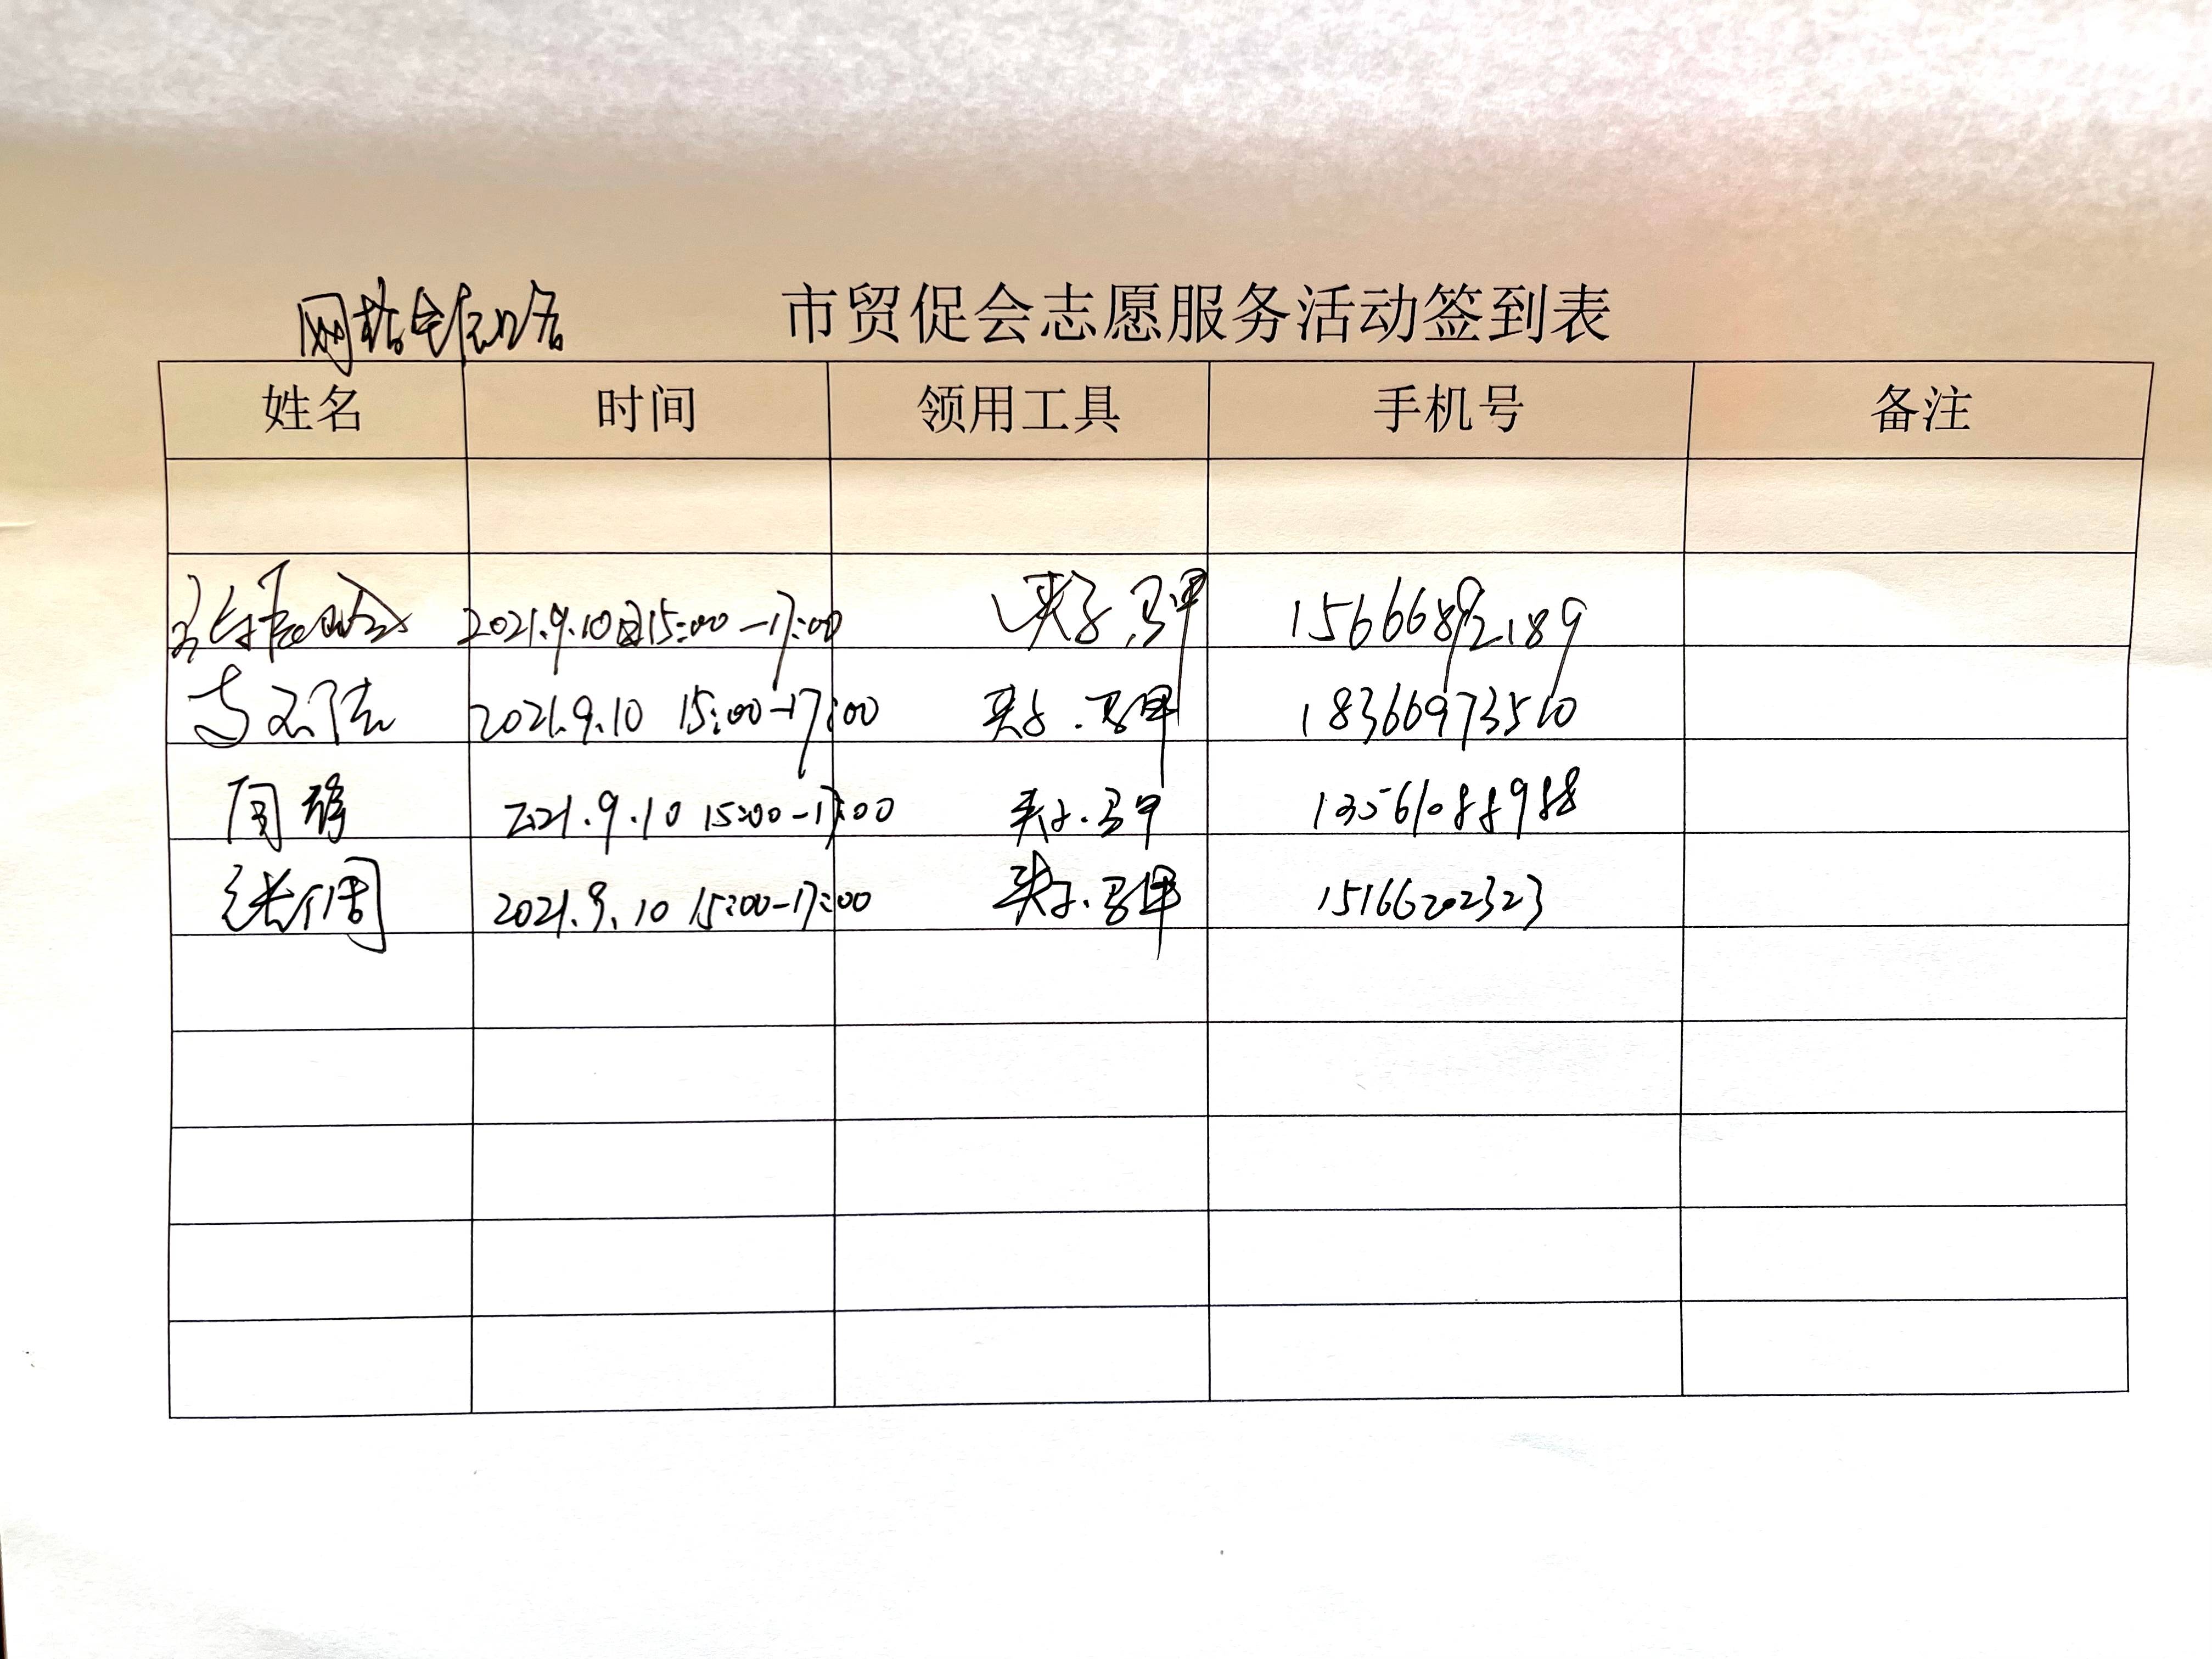 市贸促会志愿服务活动签到表
姓名 时间 领用工具 手机号 备注
2021.9.10 15:00-17:00 夹子.马甲 15666892189
2021.9.10 15:00-17:00 夹子.马甲 18366973510
2021.9.10 15:00-17:00 夹子.马甲 13561088988
2021.9.10 15:00-17:00 夹子.马甲 15166202323